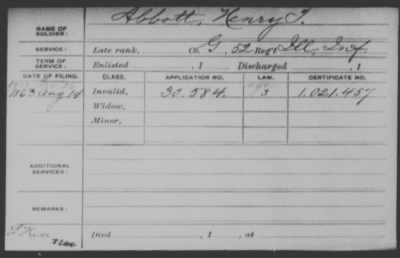 NAME OF SOLDIER: Abbott, Henry T.
SERVICE: Late rank, Co. G, 52 Reg't Ill. Inf.
TERM OF SERVICE: Enlisted , 1 Discharged , 1
DATE OF FILING. CLASS. APPLICATION NO. LAW. CERTIFICATE NO.
1863 Aug 14 Invalid, 30.584. 3 1.021.457
Widow,
Minor,
ADDITIONAL SERVICES:
REMARKS:
Died , 1 , at